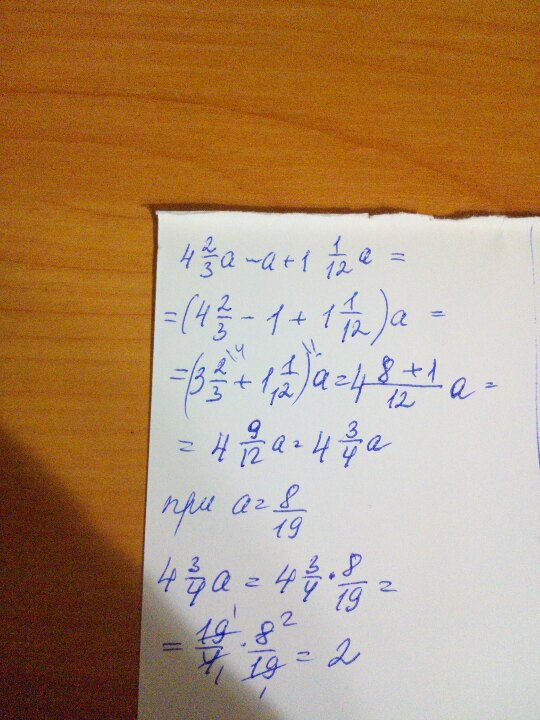 4 2/3 a - a + 1 1/12 a =
= (4 2/3 - 1 + 1 1/12) a =
= (3 2/3 \4 + 1 1/12 \1) a = 4 (8 + 1)/12 a =
= 4 9/12 a = 4 3/4 a
при a = 8/19
4 3/4 a = 4 3/4 · 8/19 =
= 19 1/4 1 · 8 2/19 1 = 2